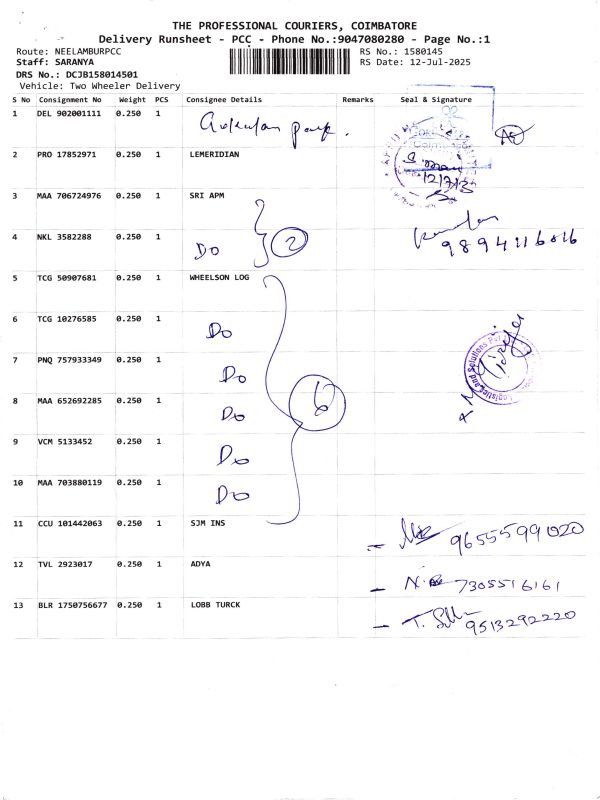 THE PROFESSIONAL COURIERS, COIMBATORE
Delivery Runsheet - PCC - Phone No.:9047080280 - Page No.:1
Route: NEELAMBURPCC RS No.: 1580145
Staff: SARANYA RS Date: 12-Jul-2025
DRS No.: DCJB158014501
Vehicle: Two Wheeler Delivery
S No Consignment No Weight PCS Consignee Details Remarks Seal & Signature
1 DEL 902001111 0.250 1
2 PRO 17852971 0.250 1 LEMERIDIAN
12/7/25
3 MAA 706724976 0.250 1 SRI APM
4 NKL 3582288 0.250 1 Do 2 9894116016
5 TCG 50907681 0.250 1 WHEELSON LOG
6 TCG 10276585 0.250 1 Do
7 PNQ 757933349 0.250 1 Do
8 MAA 652692285 0.250 1 Do 6
9 VCM 5133452 0.250 1 Do
10 MAA 703880119 0.250 1 Do
11 CCU 101442063 0.250 1 SJM INS 9655599020
12 TVL 2923017 0.250 1 ADYA 7305516161
13 BLR 1750756677 0.250 1 LOBB TURCK 9513292220